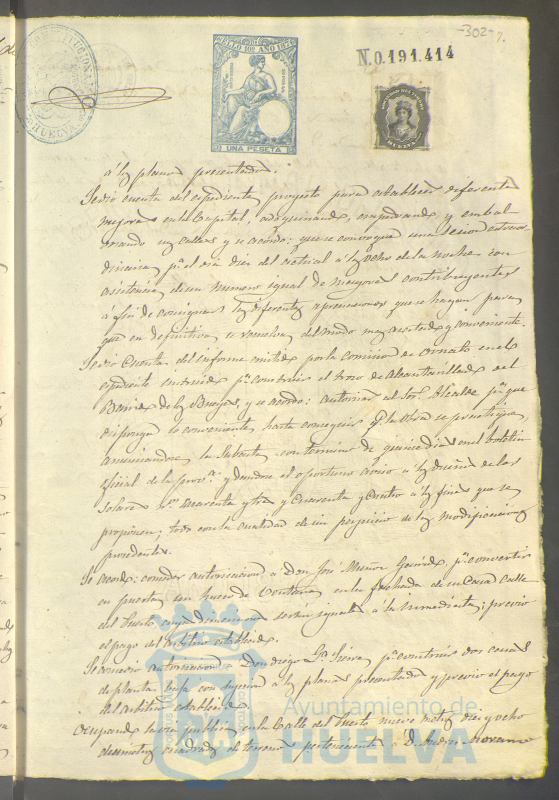 -302-
7.
SELLO 10º AÑO 187
UNA PESETA
N.0.191.414
HUELVA
á los planos presentados.
Se dio cuenta del expediente proyecto para establecer diferentes
mejoras en la Capital, adoquinando, empedrando y embal
dosando sus calles y se acordó: que se convoque una sesion estraor
dinaria pª el dia diez del actual á las ocho de la noche con
asistencia de un numero igual de mayores contribuyentes
á fin de conseguir las diferentes apreciaciones que se hagan para
que en definitiva se resuelva del modo mas acertado y conveniente.
Se dio Cuenta del informe emitido por la comision de Ornato en el es
pediente instruido pª construir el trozo de alcantarillado del
Barrio de los Bueyes, y se acordó: autorizar al Sor. Alcalde pª que
disponga lo conveniente hasta conseguir q. la obra se practique,
anunciandose la Subasta con termino de quince dias en el boletin
oficial de la provª. y dandose el oportuno aviso á los dueños de los
Solares nos. Cuarenta y tres y Cuarenta y Cuatro á los fines que se
proponen; todo con la cualidad de sin perjuicio de las modificaciones
procedentes.
Se acordó: conceder autorizacion á Don José Muñoz pª. convertir
en puerta un hueco de Ventana en la fachada de su Casa Calle
del Puerto cuyas dimensiones serán iguales á la inmediata; previo
el pago del arbitrio establecido.
Se concedió autorizacion á Don Diego Gª. Sierra pª. construir dos casas
de planta baja con sujecion á los planos presentados y previo el pago
del arbitrio establecido.
Ocupando la via publica en la Calle del Puerto nueve metros diez y ocho
desimetros cuadrados de terreno perteneciente á D. Andres Moreno
Ayuntamiento de
HUELVA